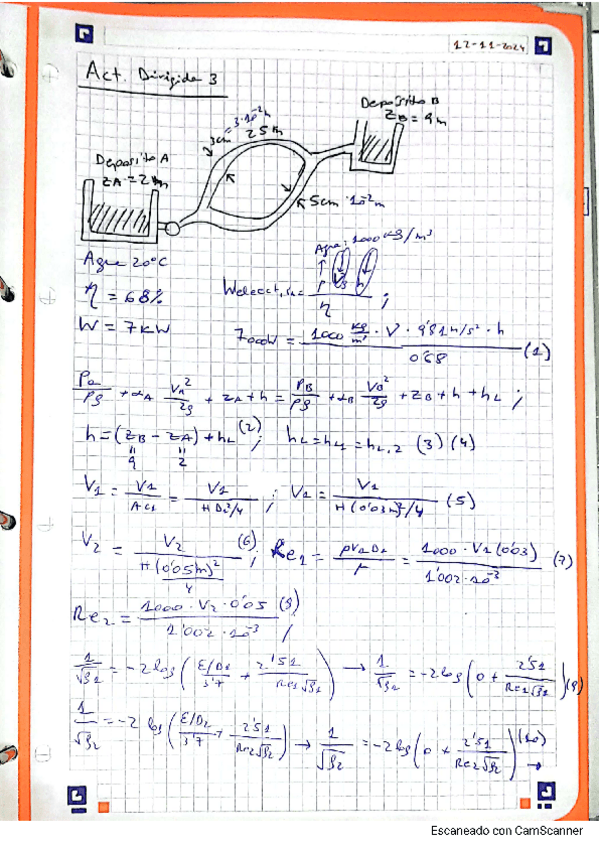 12-11-2024
Act. Dirigida 3
Deposito B
zB = 9 m
= 3·10⁻² m
3cm 25 m
Deposito A
zA = 2 m
5cm ·10⁻² m
Agua: 1000 kg/m³
Agua 20°C
η = 68%
W = 7 kW
Welecct, = ρ V g h / η ;
7000W = 1000 kg/m³ · V · 9'81 m/s² · h / 0'68 (1)
Pa/ρg + αA VA²/2g + zA + h = PB/ρg + αB VB²/2g + zB + h + hL ;
h = (zB - zA) + hL (2) ; hL = hL1 = hL,2 (3) (4)
9 2
V1 = V1/Ac1 = V1/(π D1²/4) ; V1 = V1/(π(0'03m)²/4) (5)
V2 = V2/(π(0'05m)²/4) (6) ; Re1 = ρV1D1/μ = 1000 · V1 (0'03) / 1'002·10⁻³ (7)
Re2 = 1000 · V2 · 0'05 / 1'002·10⁻³ (8) ;
1/√f1 = -2 log (ε/D1 / 3'7 + 2'51 / Re1√f1) → 1/√f1 = -2 log (0 + 2'51 / Re1√f1) (9)
1/√f2 = -2 log (ε/D2 / 3'7 + 2'51 / Re2√f2) → 1/√f2 = -2 log (0 + 2'51 / Re2√f2) (10) →
Escaneado con CamScanner